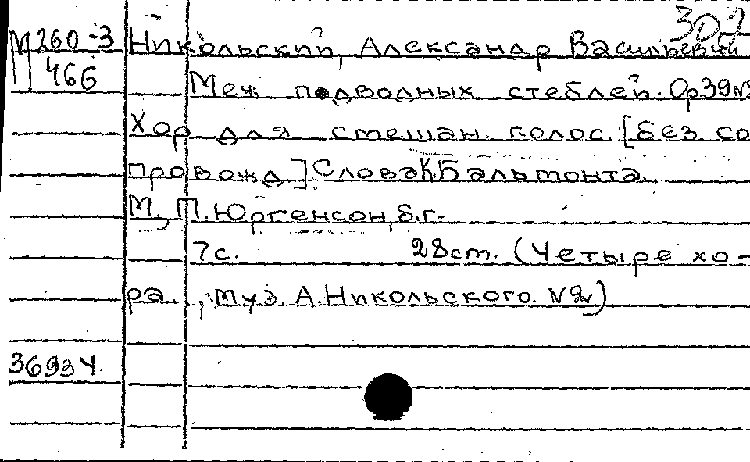 302
М260-3 Никольский, Александр Васильевич
466 Меж подводных стеблей. Ор39№2
Хор для смешан. голос. [без со
провожд] Слова К Бальмонта
М., П. Юргенсон, б.г.
7с. 28ст. (Четыре хо-
ра., муз. А. Никольского. №2)
36934.